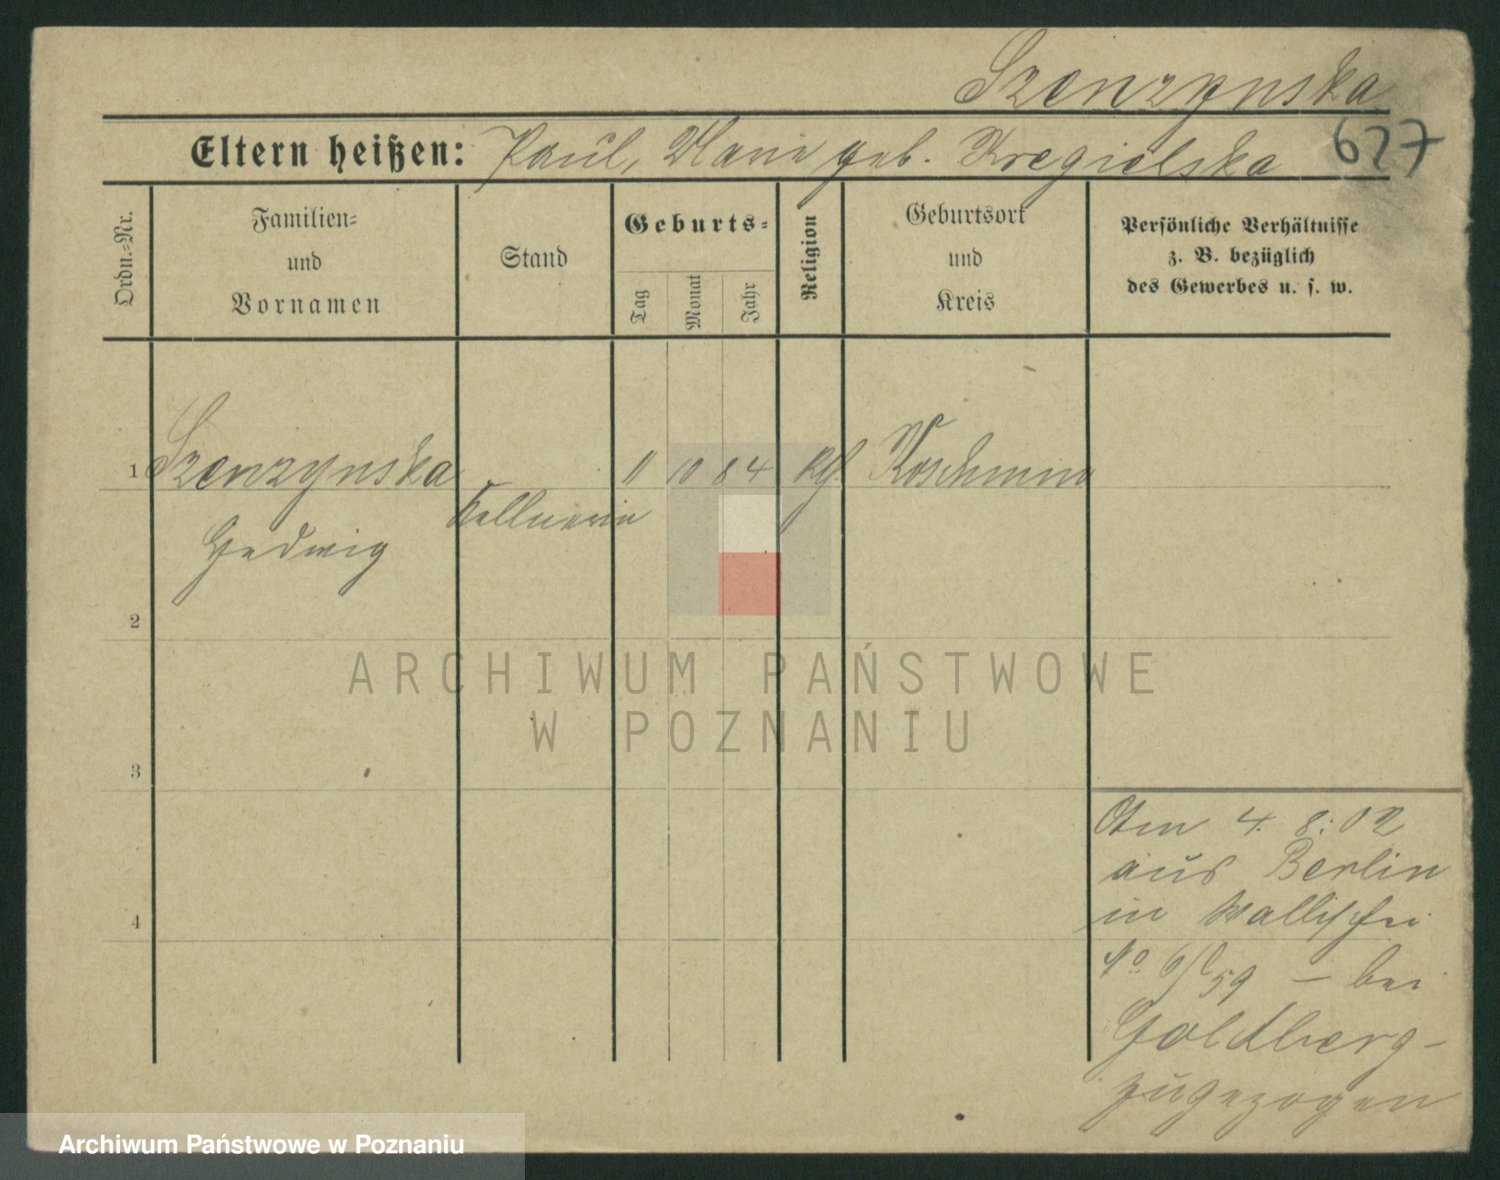 Szenzynska
627
Eltern heißen: Paul, Marie geb. Kregielska
Ordn.=Nr.
Familien=
und
Vornamen
Stand
Geburts=
Tag
Monat
Jahr
Religion
Geburtsort
und
Kreis
Persönliche Verhältnisse
z. B. bezüglich
des Gewerbes u. s. w.
1 Szenzynska 11 10 84 Koschmin
Kellnerin
Hedwig
2
3
4
Am 4. 8. 02
aus Berlin
in Wallischei
No 59 – bei
Goldberg
zugezogen
ARCHIWUM PAŃSTWOWE
W POZNANIU
Archiwum Państwowe w Poznaniu